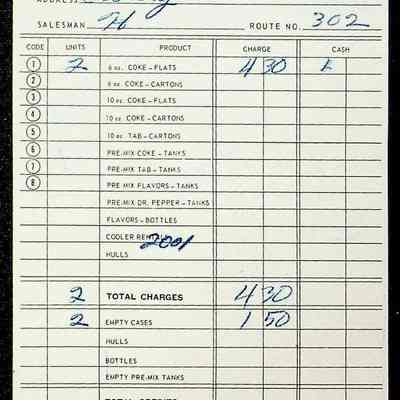 ADDRESS
SALESMAN H ROUTE NO. 302
CODE UNITS PRODUCT CHARGE CASH
1 2 6 oz. COKE-FLATS 4 30
2 6 oz. COKE-CARTONS
3 10 oz. COKE-FLATS
4 10 oz. COKE-CARTONS
5 10 oz. TAB-CARTONS
6 PRE-MIX COKE-TANKS
7 PRE-MIX TAB-TANKS
8 PRE MIX FLAVORS-TANKS
PRE-MIX DR. PEPPER-TANKS
FLAVORS-BOTTLES
COOLER RENTALS 2001
HULLS
2 TOTAL CHARGES 4 30
2 EMPTY CASES 1 50
HULLS
BOTTLES
EMPTY PRE-MIX TANKS
TOTAL CREDITS